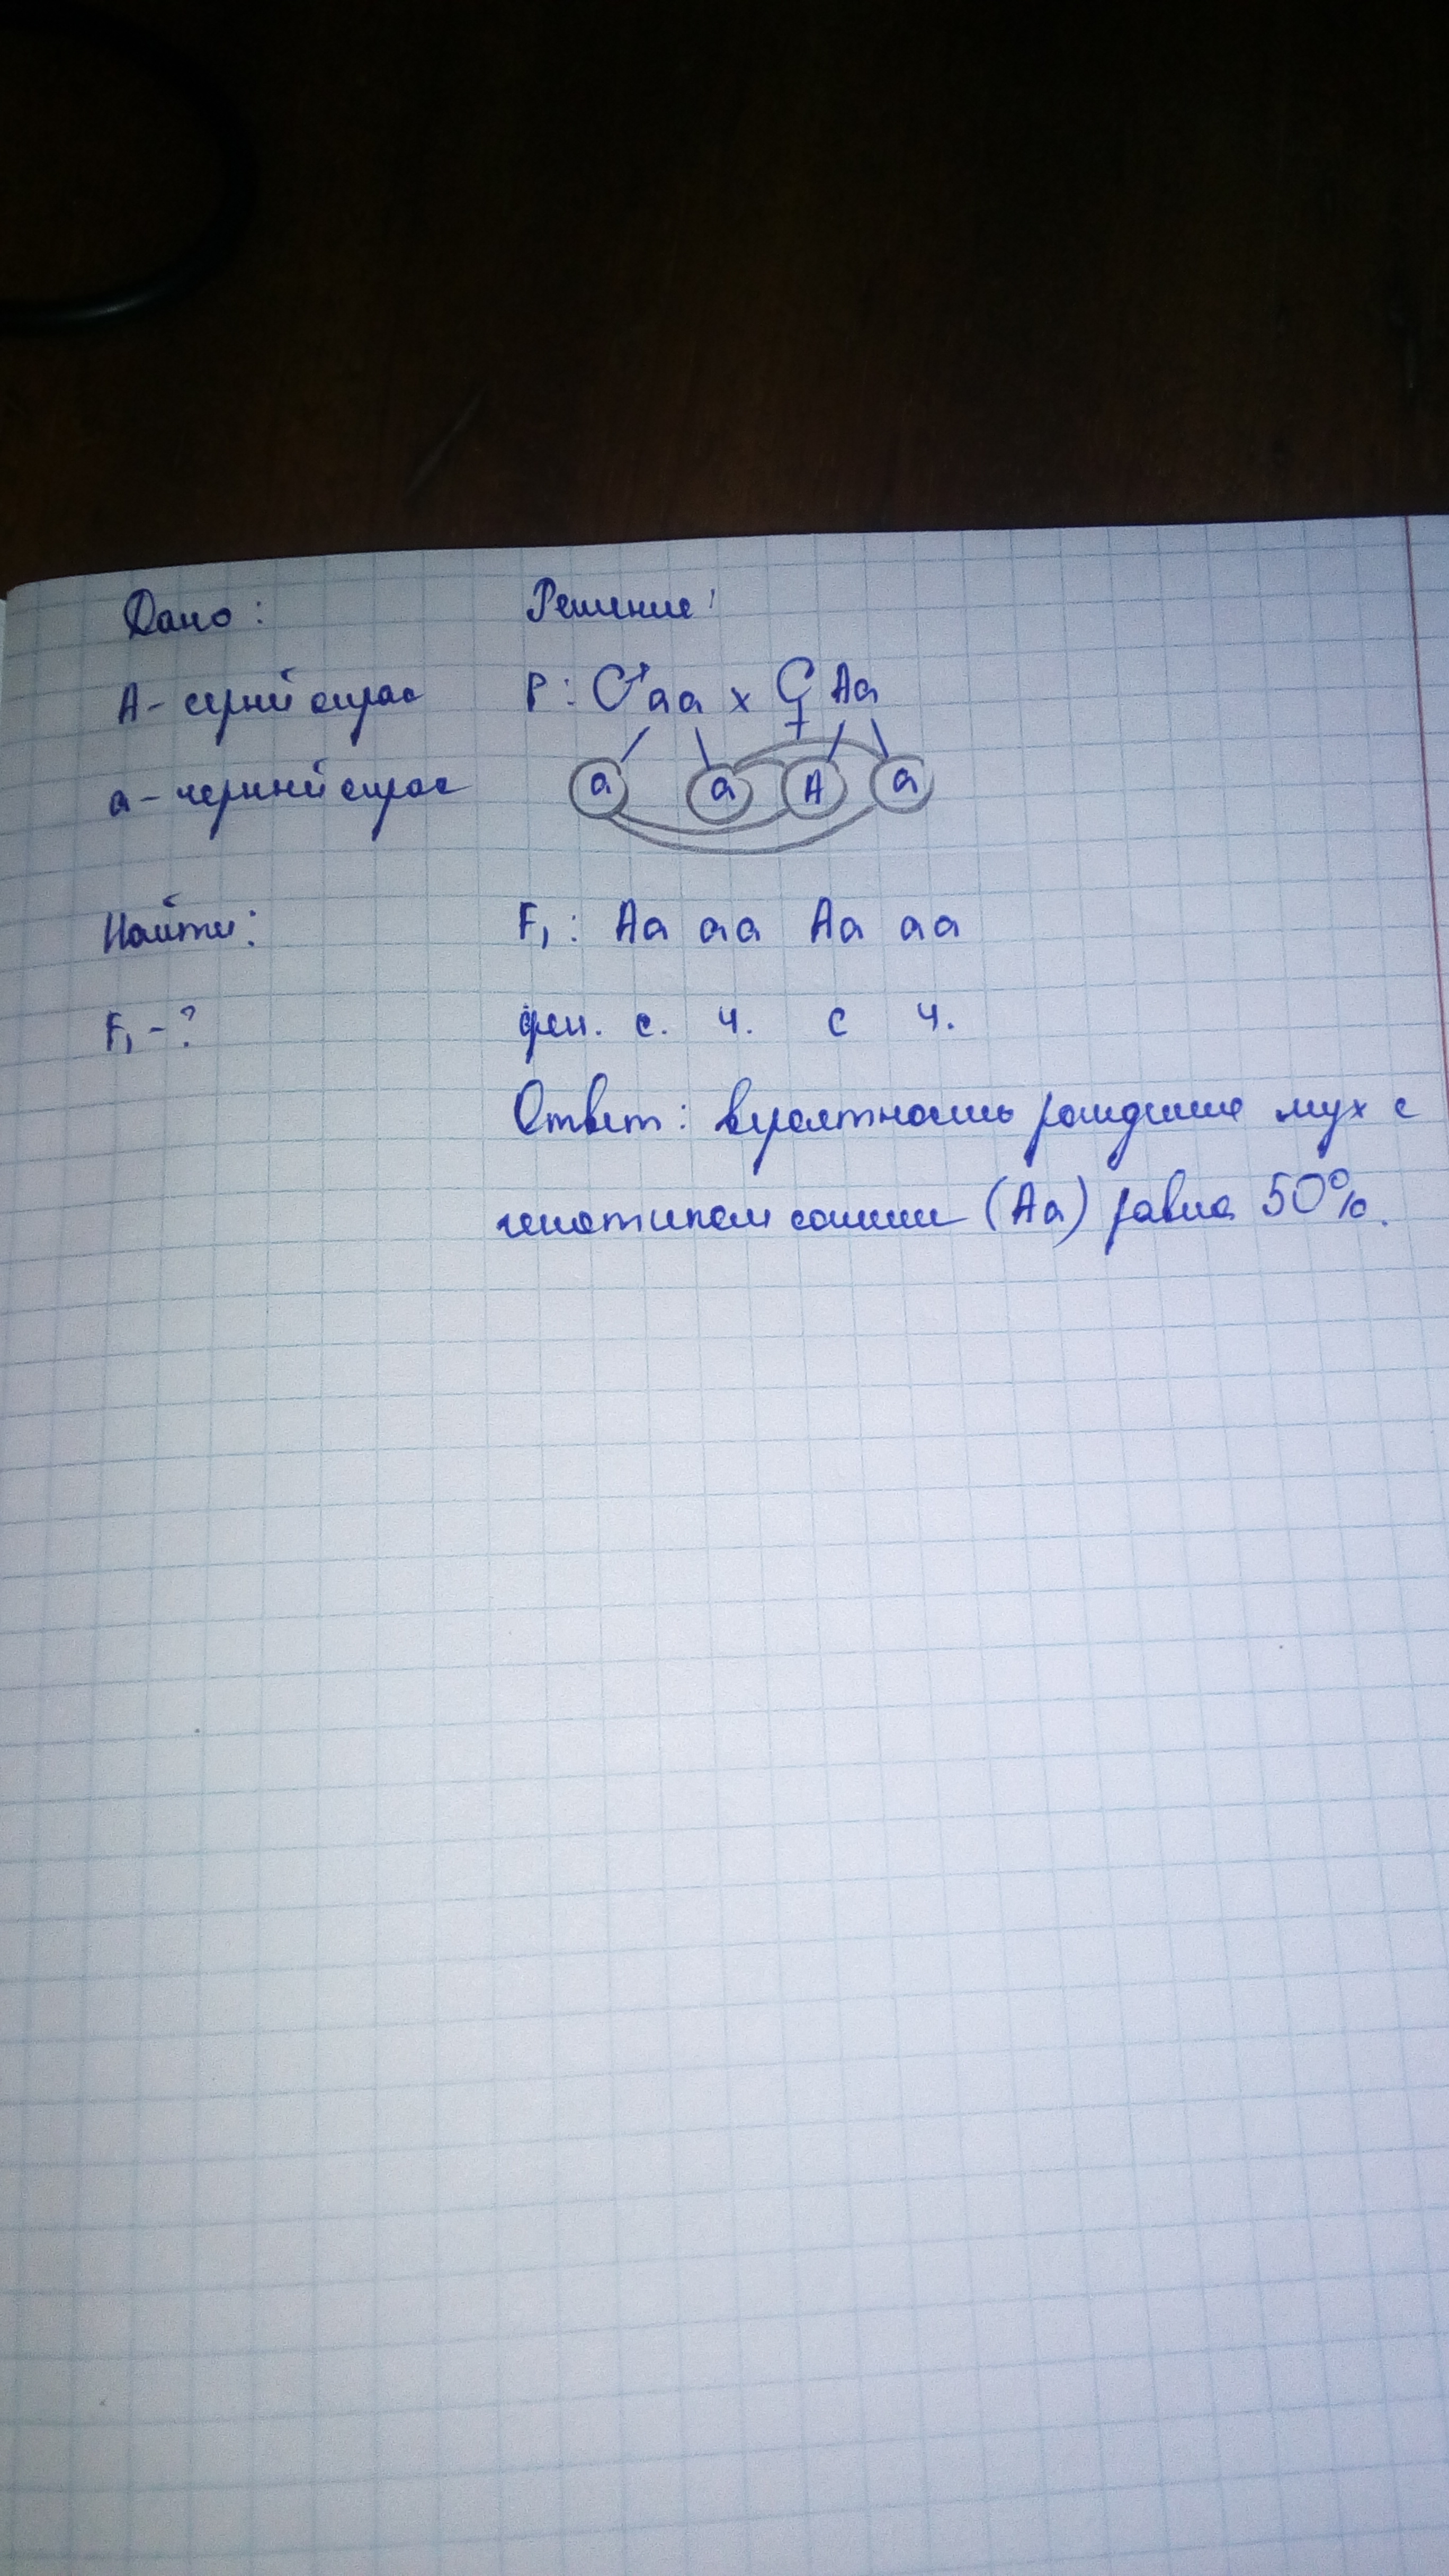 Дано: Решение:
А - серый окрас P: ♂ aa x ♀ Aa
а - черный окрас a a A a
Найти: F₁: Aa aa Aa aa
F₁ - ? фен. с. ч. с ч.
Ответ: вероятность рождения мух с
генотипом самки (Aa) равна 50%.